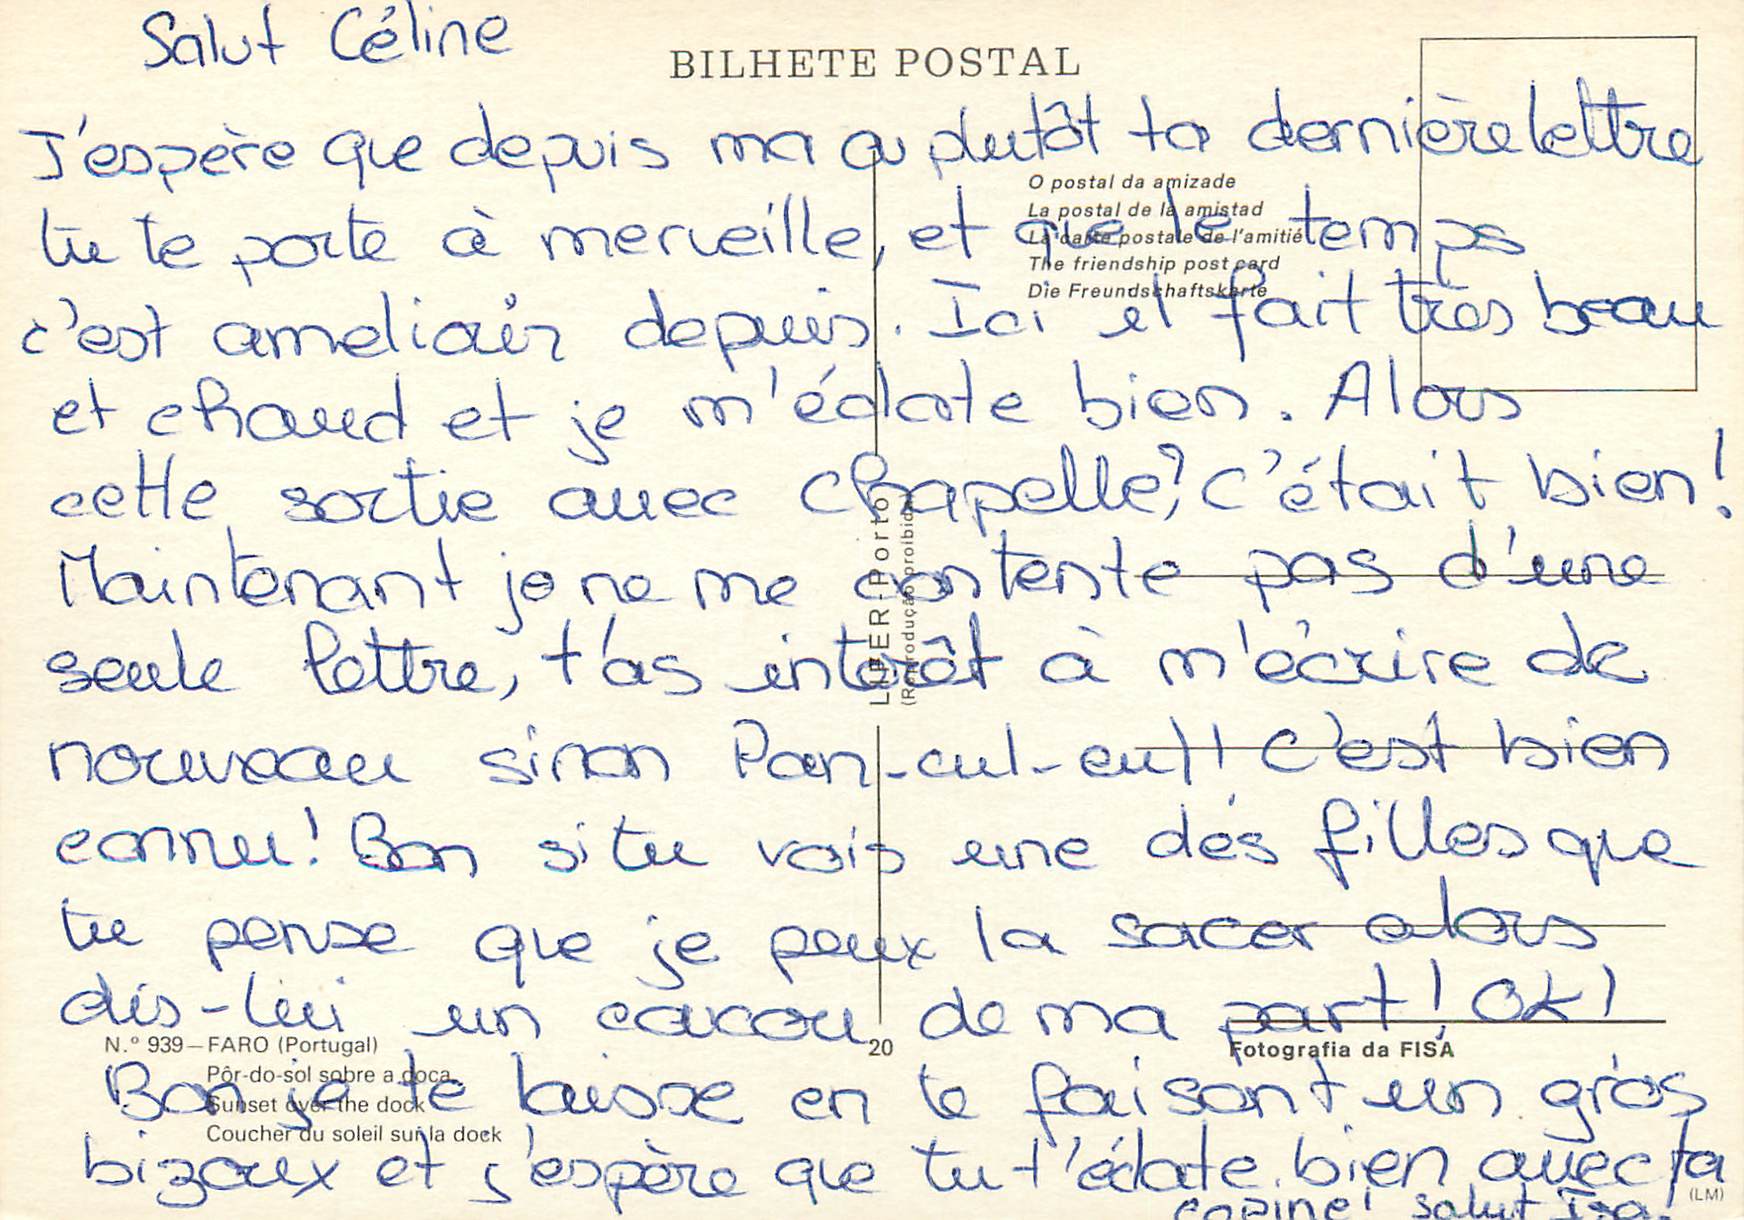 Salut Céline
BILHETE POSTAL
J'espère que depuis ma ou plutôt ta dernière lettre
O postal da amizade
La postal de la amistad
La carte postale de l'amitié
The friendship post card
Die Freundschaftskarte
tu te porte à merveille, et que le temps
c'est ameliair depuis. Ici il fait très beau
et chaud et je m'éclate bien. Alors
cette sortie avec Chapelle? C'était bien!
Maintenant je ne me contente pas d'une
seule lettre, t'as intérêt à m'écrire de
nouveau sinon Pan-cul-cul! C'est bien
connu! Bon si tu vois une des filles que
tu pense que je peux la sacer alors
dis-lui un coucou de ma part! OK!
LIFER-Porto
(Reprodução proibida)
N.º 939—FARO (Portugal)
Pôr-do-sol sobre a doca
Sunset over the dock
Coucher du soleil sur la dock
20
Fotografia da FISA
Bon je te laisse en te faisant un gros
bizoux et j'espère que tu t'éclate bien avec ta
copine! Salut Isa!
(LM)